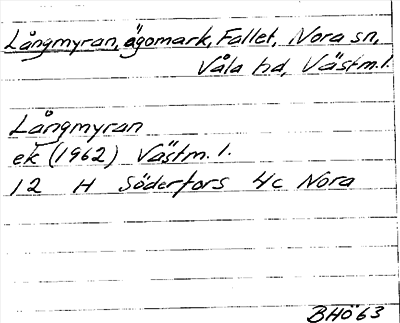 Långmyran, ägomark, Fallet, Nora sn,
Våla hd, Västm.l.
Långmyran
ek (1962) Västm. l.
12 H Söderfors 4c Nora
BHÖ63